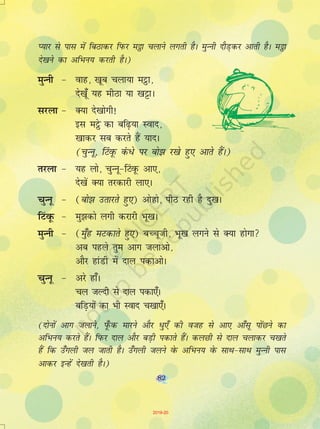 प्यार से पास में बिठाकर फिर मट्ठा चलाने लगती है। मुन्नी दौड़कर आती है। मट्ठा
देखने का अभिनय करती है।)
मुन्नी - वाह, खूब चलाया मट्ठा,
देखूँ यह मीठा या खट्टा।
सरला - क्या देखोगी!
इस मट्ठे का बढ़िया स्वाद,
खाकर सब करते हैं याद।
(चुन्नू, टिंकू कंधे पर बोझ रखे हुए आते हैं।)
तरला - यह लो, चुन्नू-टिंकू आए,
देखें क्या तरकारी लाए।
चुन्नू - (बोझ उतारते हुए) ओहो, पीठ रही है दुख।
टिंकू - मुझको लगी करारी भूख।
मुन्नी - (मुँह मटकाते हुए) बच्चूजी, भूख लगने से क्या होगा?
अब पहले तुम आग जलाओ,
और हांडी में दाल पकाओ।
चुन्नू - अरे हाँ।
चल जल्दी से दाल पकाएँ।
बड़ियों का भी स्वाद चखाएँ।
(दोनों आग जलाने, फूँक मारने और धुएँ की वजह से आए आँसू पोंछने का
अभिनय करते हैं। फिर दाल और बड़ी पकाते हैं। कलछी से दाल चलाकर चखते
हैं कि उँगली जल जाती है। उँगली जलने के अभिनय के साथ-साथ मुन्नी पास
आकर इन्हें देखती है।)
82
2019-20